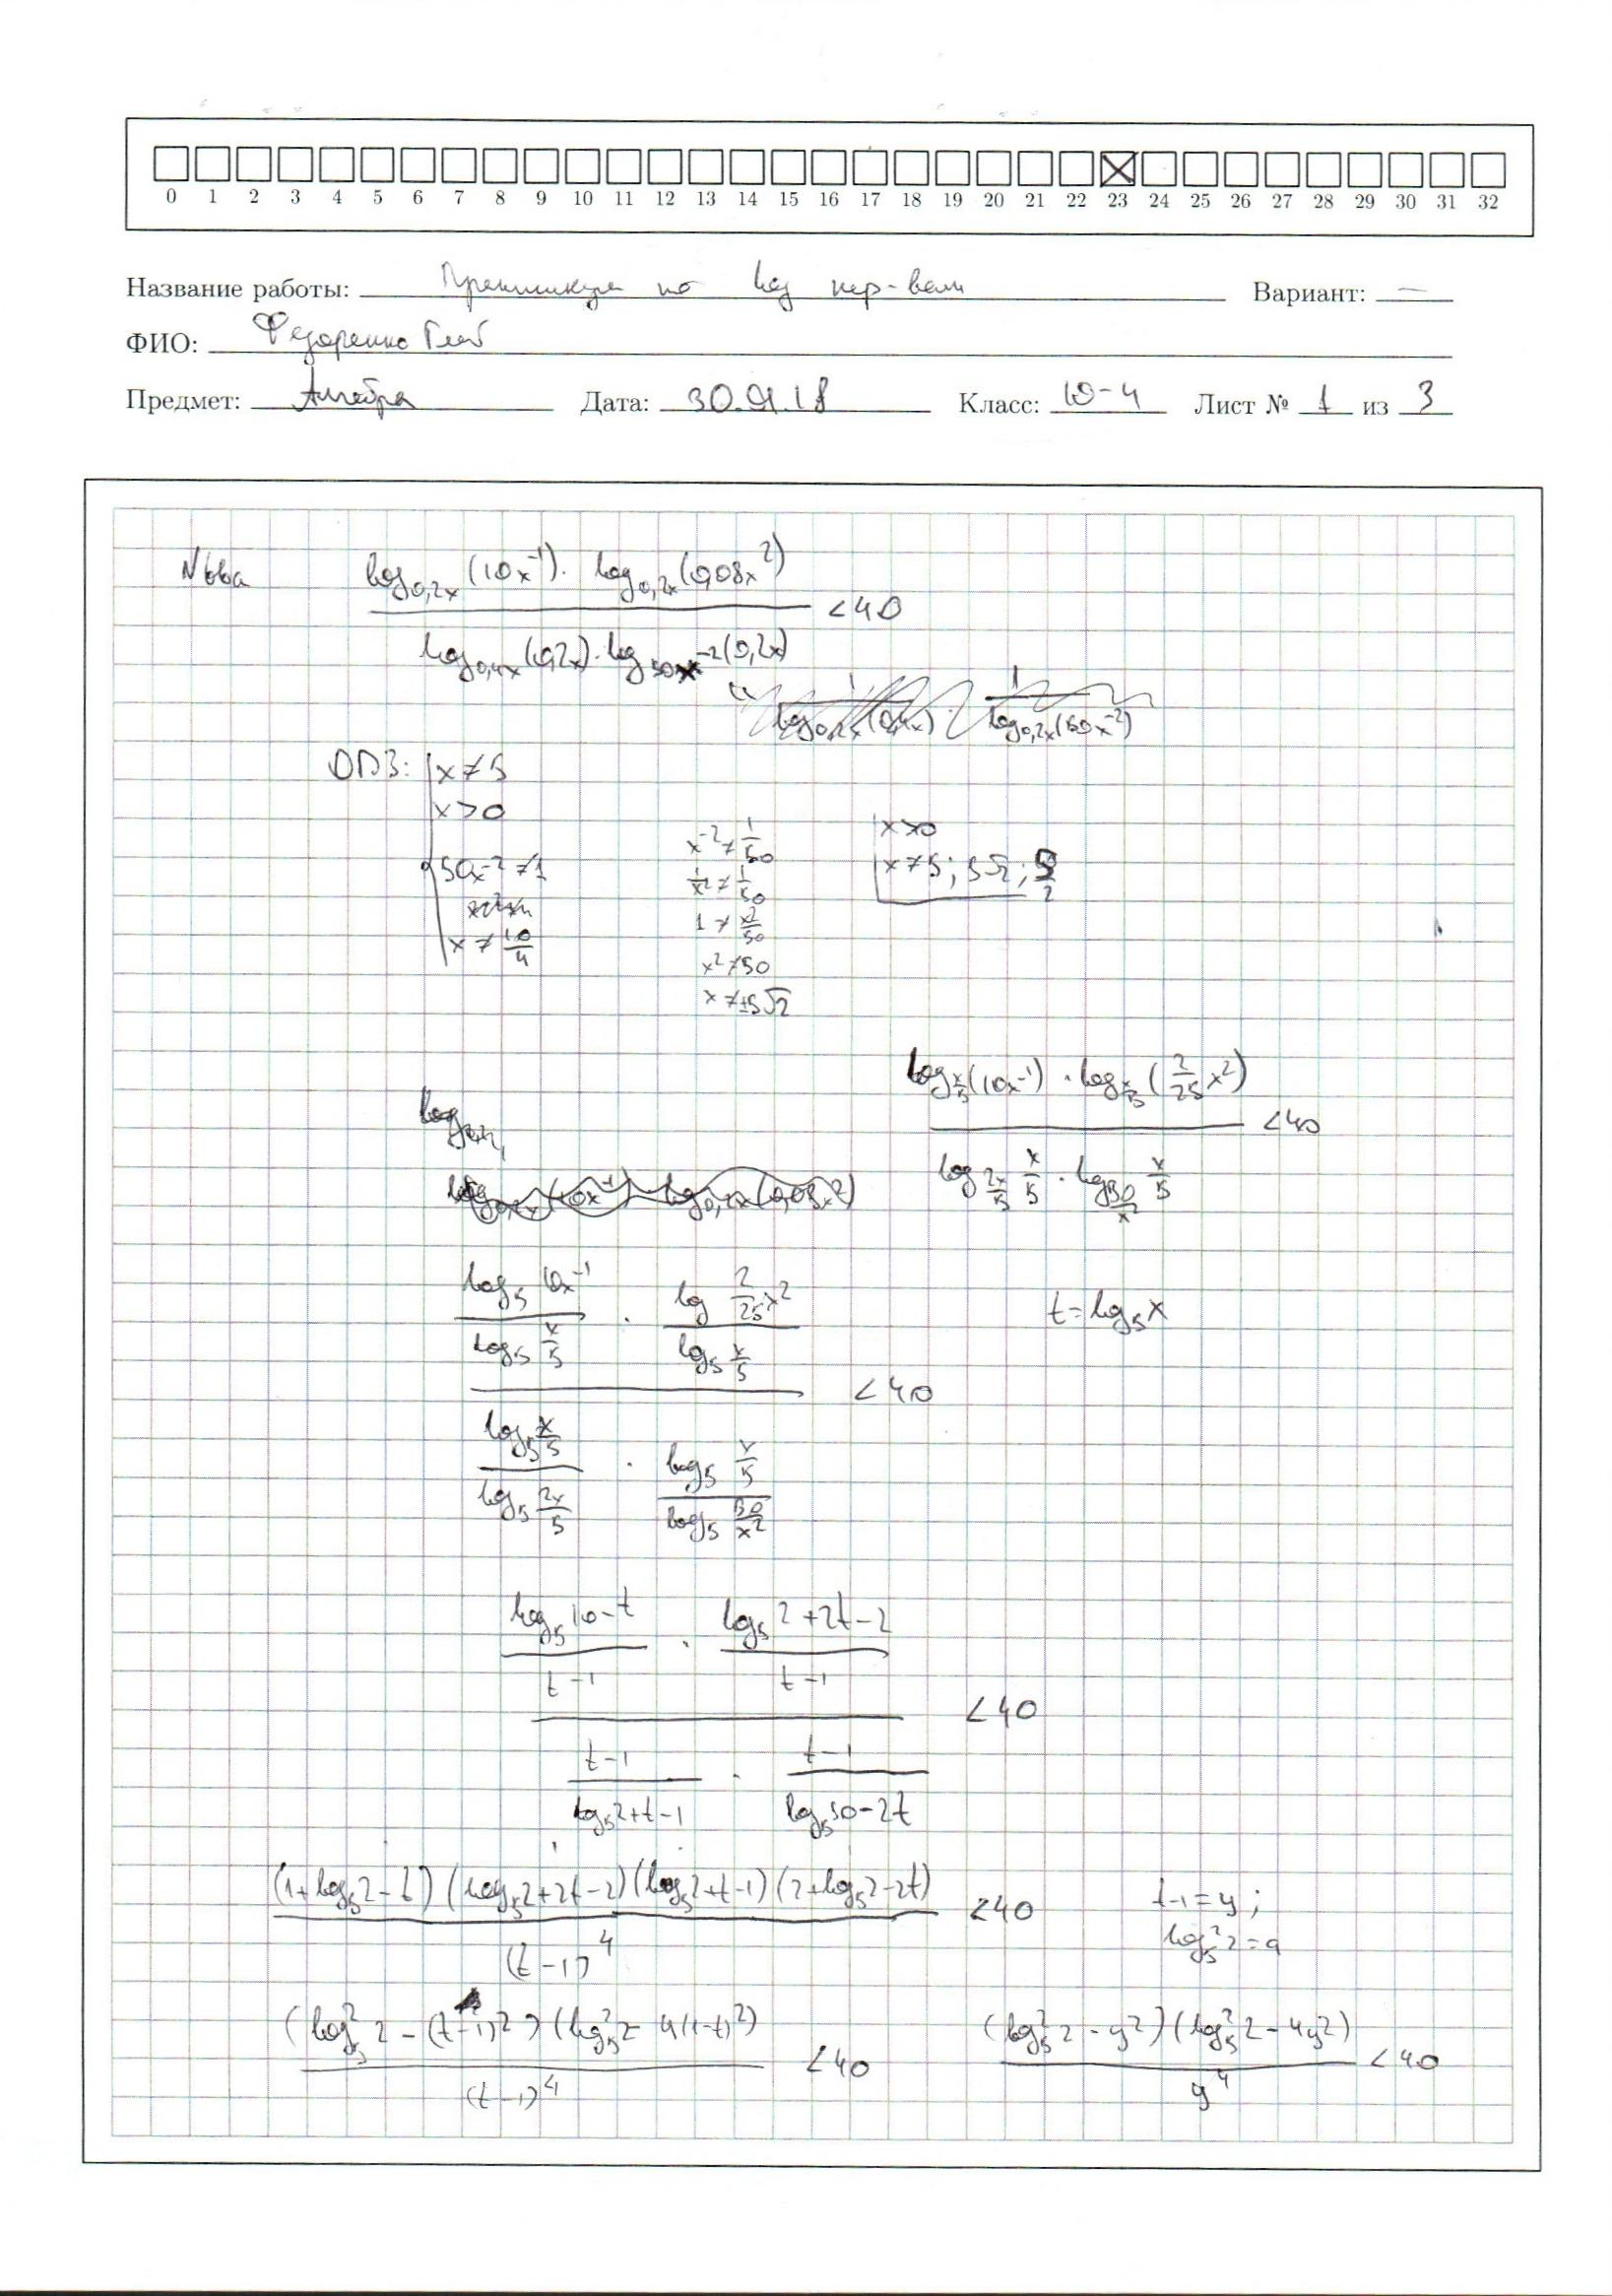 0 1 2 3 4 5 6 7 8 9 10 11 12 13 14 15 16 17 18 19 20 21 22 23 24 25 26 27 28 29 30 31 32
Название работы: по log нер-вам Вариант: —
ФИО: Федоренко Глеб
Предмет: Алгебра Дата: 30.01.18 Класс: 10-4 Лист № 1 из 3
N66a
log_{0,2x}(10x^{-1}) · log_{0,2x}(0,08x^2)
< 40
log_{0,4x}(0,2x) · log_{50x^{-2}}(0,2x)
log_{0,2x}(0,4x) log_{0,2x}(50x^{-2})
ОДЗ: x ≠ 5
x > 0
50x^{-2} ≠ 1
x ≠ 10/4
x^{-2} ≠ 1/50
1/x^2 ≠ 1/50
1 ≠ x^2/50
x^2 ≠ 50
x ≠ ±5√2
x > 0
x ≠ 5; 5√2; 5/2
log_{x/5}(10x^{-1}) · log_{x/5}(2/25 x^2)
< 40
log_{2x/5} x/5 · log_{50/x^2} x/5
log_{0,2x}(10x^{-1}) log_{0,2x}(0,08x^2)
log_5 10x^{-1} / log_5 x/5 · log 2/25 x^2 / log_5 x/5
< 40
log_5 x/5 / log_5 2x/5 · log_5 x/5 / log_5 50/x^2
t = log_5 x
log_5 10 - t / t - 1 · log_5 2 + 2t - 2 / t - 1
< 40
t - 1 / log_5 2 + t - 1 · t - 1 / log_5 50 - 2t
(1 + log_5 2 - t)(log_5 2 + 2t - 2)(log_5 2 + t - 1)(2 + log_5 2 - 2t)
< 40
(t - 1)^4
t - 1 = y;
log_5^2 2 = a
(log_5^2 2 - (t - 1)^2)(log_5^2 2 - 4(1 - t)^2)
< 40
(t - 1)^4
(log_5^2 2 - y^2)(log_5^2 2 - 4y^2)
< 40
y^4